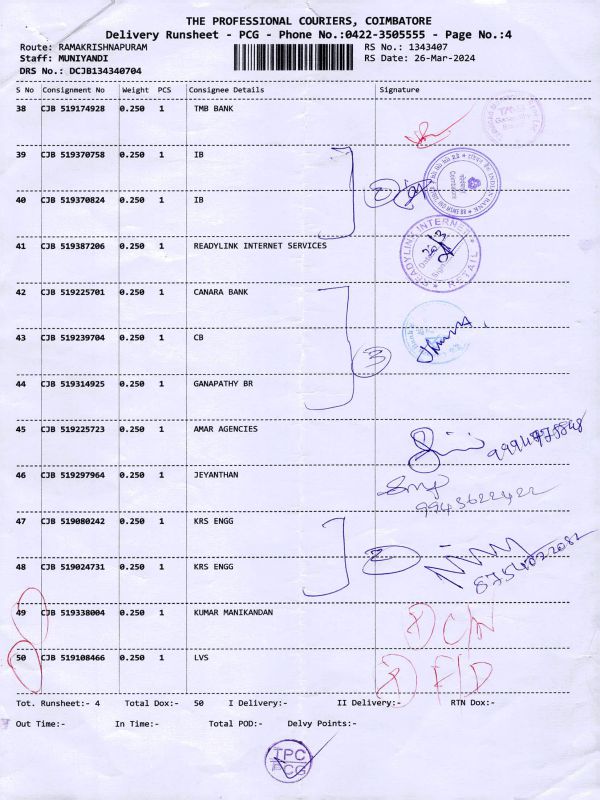 THE PROFESSIONAL COURIERS, COIMBATORE
Delivery Runsheet - PCG - Phone No.:0422-3505555 - Page No.:4
Route: RAMAKRISHNAPURAM RS No.: 1343407
Staff: MUNIYANDI RS Date: 26-Mar-2024
DRS No.: DCJB134340704
S No Consignment No Weight PCS Consignee Details Signature
38 CJB 519174928 0.250 1 TMB BANK
39 CJB 519370758 0.250 1 IB
2
INDIAN BANK
40 CJB 519370824 0.250 1 IB
READYLINK INTERNET
41 CJB 519387206 0.250 1 READYLINK INTERNET SERVICES
RETAIL
42 CJB 519225701 0.250 1 CANARA BANK
43 CJB 519239704 0.250 1 CB
3
44 CJB 519314925 0.250 1 GANAPATHY BR
45 CJB 519225723 0.250 1 AMAR AGENCIES
46 CJB 519297964 0.250 1 JEYANTHAN
9943622422
47 CJB 519080242 0.250 1 KRS ENGG
2
48 CJB 519024731 0.250 1 KRS ENGG
8754022082
49 CJB 519338004 0.250 1 KUMAR MANIKANDAN C/N
50 CJB 519108466 0.250 1 LVS F/D
Tot. Runsheet:- 4 Total Dox:- 50 I Delivery:- II Delivery:- RTN Dox:-
Out Time:- In Time:- Total POD:- Delvy Points:-
TPC
PCG